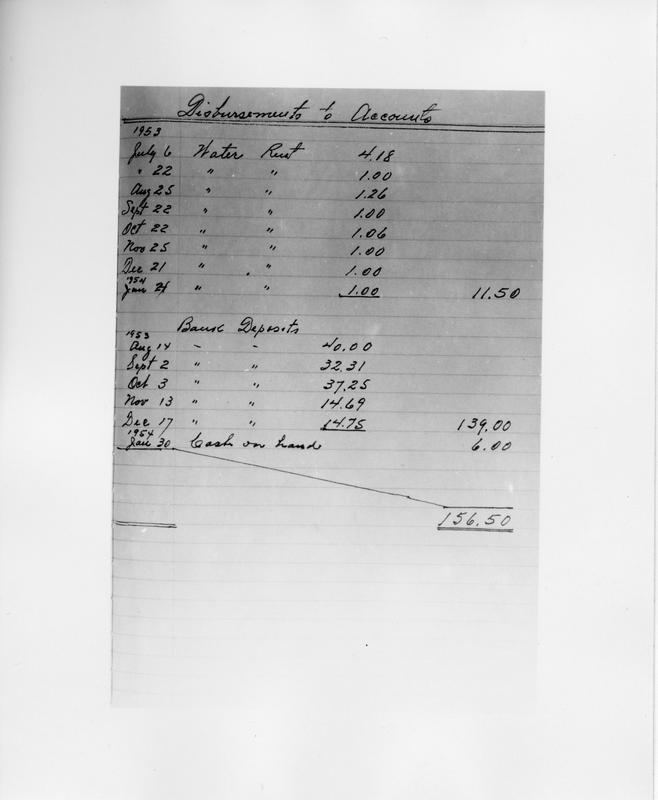 Disbursements to Accounts
1953
July 6 Water Rent 4.18
" 22 " " 1.00
Aug 25 " " 1.26
Sept 22 " " 1.00
Oct 22 " " 1.06
Nov 25 " " 1.00
Dec 21 " " 1.00
1954
Jan 21 " " 1.00 11.50
Bank Deposits
1953
Aug 14 - - 40.00
Sept 2 " " 32.31
Oct 3 " " 37.25
Nov 13 " " 14.69
Dec 17 " " 14.75 139.00
1954
Jan 30 Cash on hand 6.00
156.50